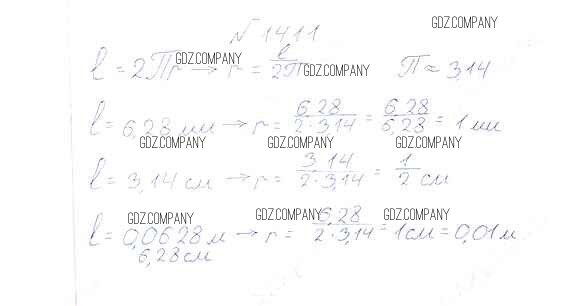 GDZ.COMPANY
№ 1411
l = 2Пr → r = l/2П П ≈ 3,14
GDZ.COMPANY GDZ.COMPANY
l = 6,28 мм → r = 6,28/2·3,14 = 6,28/6,28 = 1 мм
GDZ.COMPANY GDZ.COMPANY GDZ.COMPANY
l = 3,14 см → r = 3,14/2·3,14 = 1/2 см
GDZ.COMPANY GDZ.COMPANY GDZ.COMPANY
l = 0,0628 м → r = 6,28/2·3,14 = 1 см = 0,01 м
6,28 см